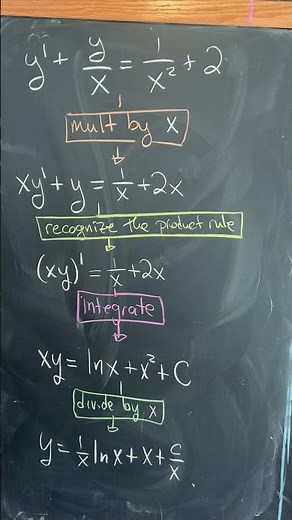 y' + y/x = 1/x² + 2
mult by x
xy' + y = 1/x + 2x
recognize the product rule
(xy)' = 1/x + 2x
integrate
xy = lnx + x² + C
divide by x
y = 1/x lnx + x + C/x.